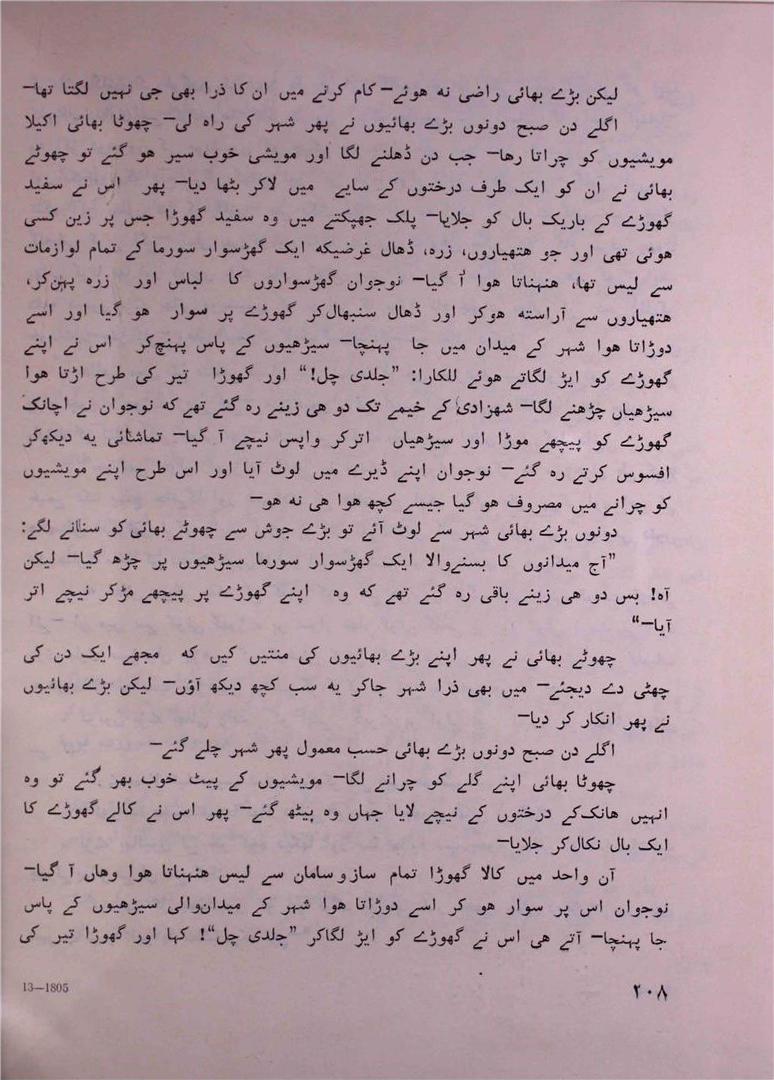 لیکن بڑے بھائی راضی نہ ھوئے— کام کرنے میں ان کا ذرا بھی جی نہیں لگتا تھا—
اگلے دن صبح دونوں بڑے بھائیوں نے پھر شہر کی راہ لی— چھوٹا بھائی اکیلا
مویشیوں کو چراتا رھا— جب دن ڈھلنے لگا اور مویشی خوب سیر ھو گئے تو چھوٹے
بھائی نے ان کو ایک طرف درختوں کے سایے میں لاکر بٹھا دیا— پھر اس نے سفید
گھوڑے کے باریک بال کو جلایا— پلک جھپکتے میں وہ سفید گھوڑا جس پر زین کسی
ھوئی تھی اور جو ھتھیاروں، زرہ، ڈھال غرضیکہ ایک گھڑسوار سورما کے تمام لوازمات
سے لیس تھا، ھنہناتا ھوا آ گیا— نوجوان گھڑسواروں کا لباس اور زرہ پہن کر،
ھتھیاروں سے آراستہ ھوکر اور ڈھال سنبھال کر گھوڑے پر سوار ھو گیا اور اسے
دوڑاتا ھوا شہر کے میدان میں جا پہنچا— سیڑھیوں کے پاس پہنچ کر اس نے اپنے
گھوڑے کو ایڑ لگاتے ھوئے للکارا: ”جلدی چل!“ اور گھوڑا تیر کی طرح اڑتا ھوا
سیڑھیاں چڑھنے لگا— شہزادی کے خیمے تک دو ھی زینے رہ گئے تھے کہ نوجوان نے اچانک
گھوڑے کو پیچھے موڑا اور سیڑھیاں اترکر واپس نیچے آ گیا— تماشائی یہ دیکھ کر
افسوس کرتے رہ گئے— نوجوان اپنے ڈیرے میں لوٹ آیا اور اس طرح اپنے مویشیوں
کو چرانے میں مصروف ھو گیا جیسے کچھ ھوا ھی نہ ھو—
دونوں بڑے بھائی شہر سے لوٹ آئے تو بڑے جوش سے چھوٹے بھائی کو سنانے لگے:
”آج میدانوں کا بسنے والا ایک گھڑسوار سورما سیڑھیوں پر چڑھ گیا— لیکن
آہ! بس دو ھی زینے باقی رہ گئے تھے کہ وہ اپنے گھوڑے پر پیچھے مڑکر نیچے اتر
آیا—“
چھوٹے بھائی نے پھر اپنے بڑے بھائیوں کی منتیں کیں کہ مجھے ایک دن کی
چھٹی دے دیجئے— میں بھی ذرا شہر جاکر یہ سب کچھ دیکھ آؤں— لیکن بڑے بھائیوں
نے پھر انکار کر دیا—
اگلے دن صبح دونوں بڑے بھائی حسب معمول پھر شہر چلے گئے—
چھوٹا بھائی اپنے گلے کو چرانے لگا— مویشیوں کے پیٹ خوب بھر گئے تو وہ
انہیں ھانک کے درختوں کے نیچے لایا جہاں وہ بیٹھ گئے— پھر اس نے کالے گھوڑے کا
ایک بال نکال کر جلایا—
آن واحد میں کالا گھوڑا تمام ساز و سامان سے لیس ھنہناتا ھوا وھاں آ گیا—
نوجوان اس پر سوار ھو کر اسے دوڑاتا ھوا شہر کے میدان والی سیڑھیوں کے پاس
جا پہنچا— آتے ھی اس نے گھوڑے کو ایڑ لگاکر ”جلدی چل“! کہا اور گھوڑا تیر کی
13—1805
۲۰۸